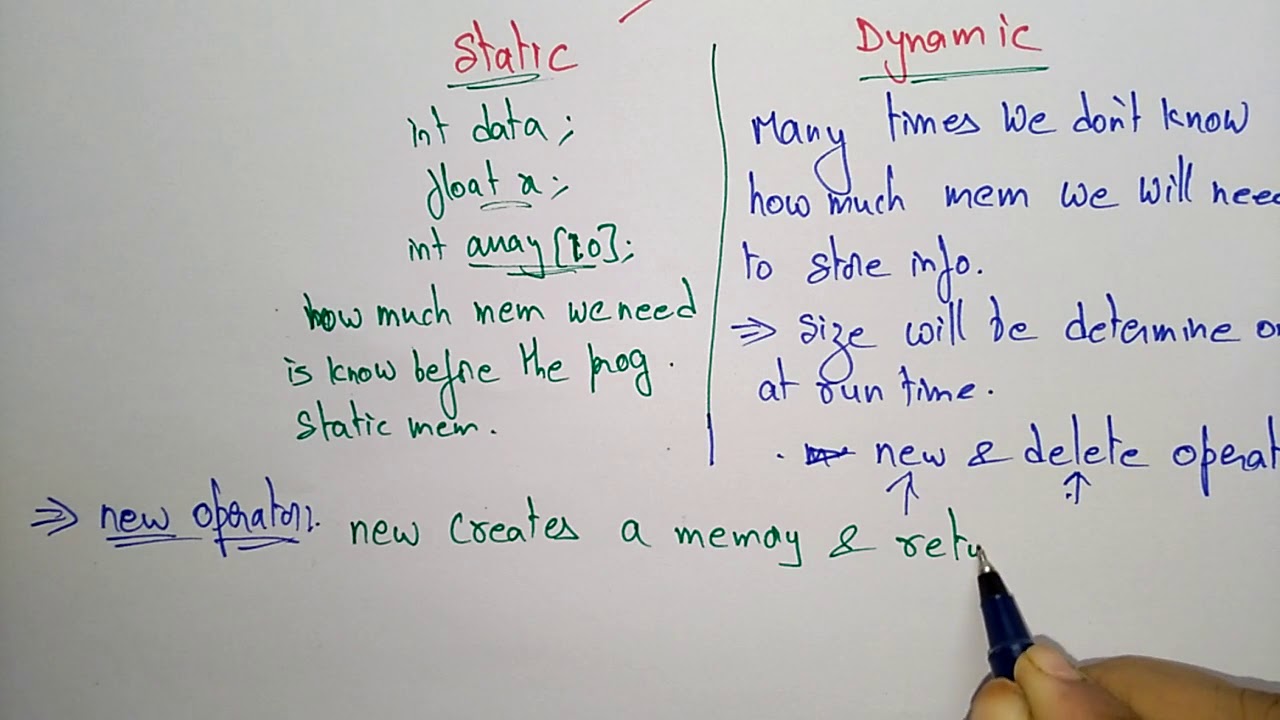 Static
int data;
float x;
int array[10];
how much mem we need
is know before the prog.
static mem.
Dynamic
Many times we don't know
how much mem we will need
to store info.
⇒ size will be determine on
at run time.
new & delete operat
⇒ new operator:. new creates a memoy & retu